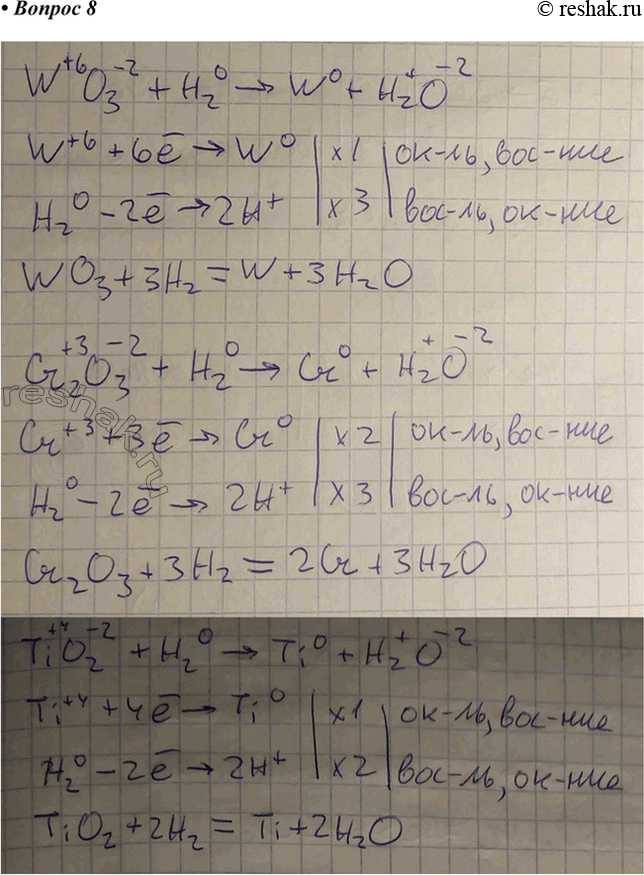 • Вопрос 8
© reshak.ru
W⁺⁶O₃⁻² + H₂⁰ → W⁰ + H₂⁺O⁻²
W⁺⁶ + 6ē → W⁰ | x1 | ок-ль, вос-ние
H₂⁰ - 2ē → 2H⁺ | x3 | вос-ль, ок-ние
WO₃ + 3H₂ = W + 3H₂O
Cr₂⁺³O₃⁻² + H₂⁰ → Cr⁰ + H₂⁺O⁻²
reshak.ru
Cr⁺³ + 3ē → Cr⁰ | x2 | ок-ль, вос-ние
H₂⁰ - 2ē → 2H⁺ | x3 | вос-ль, ок-ние
Cr₂O₃ + 3H₂ = 2Cr + 3H₂O
Ti⁺⁴O₂⁻² + H₂⁰ → Ti⁰ + H₂⁺O⁻²
Ti⁺⁴ + 4ē → Ti⁰ | x1 | ок-ль, вос-ние
H₂⁰ - 2ē → 2H⁺ | x2 | вос-ль, ок-ние
TiO₂ + 2H₂ = Ti + 2H₂O